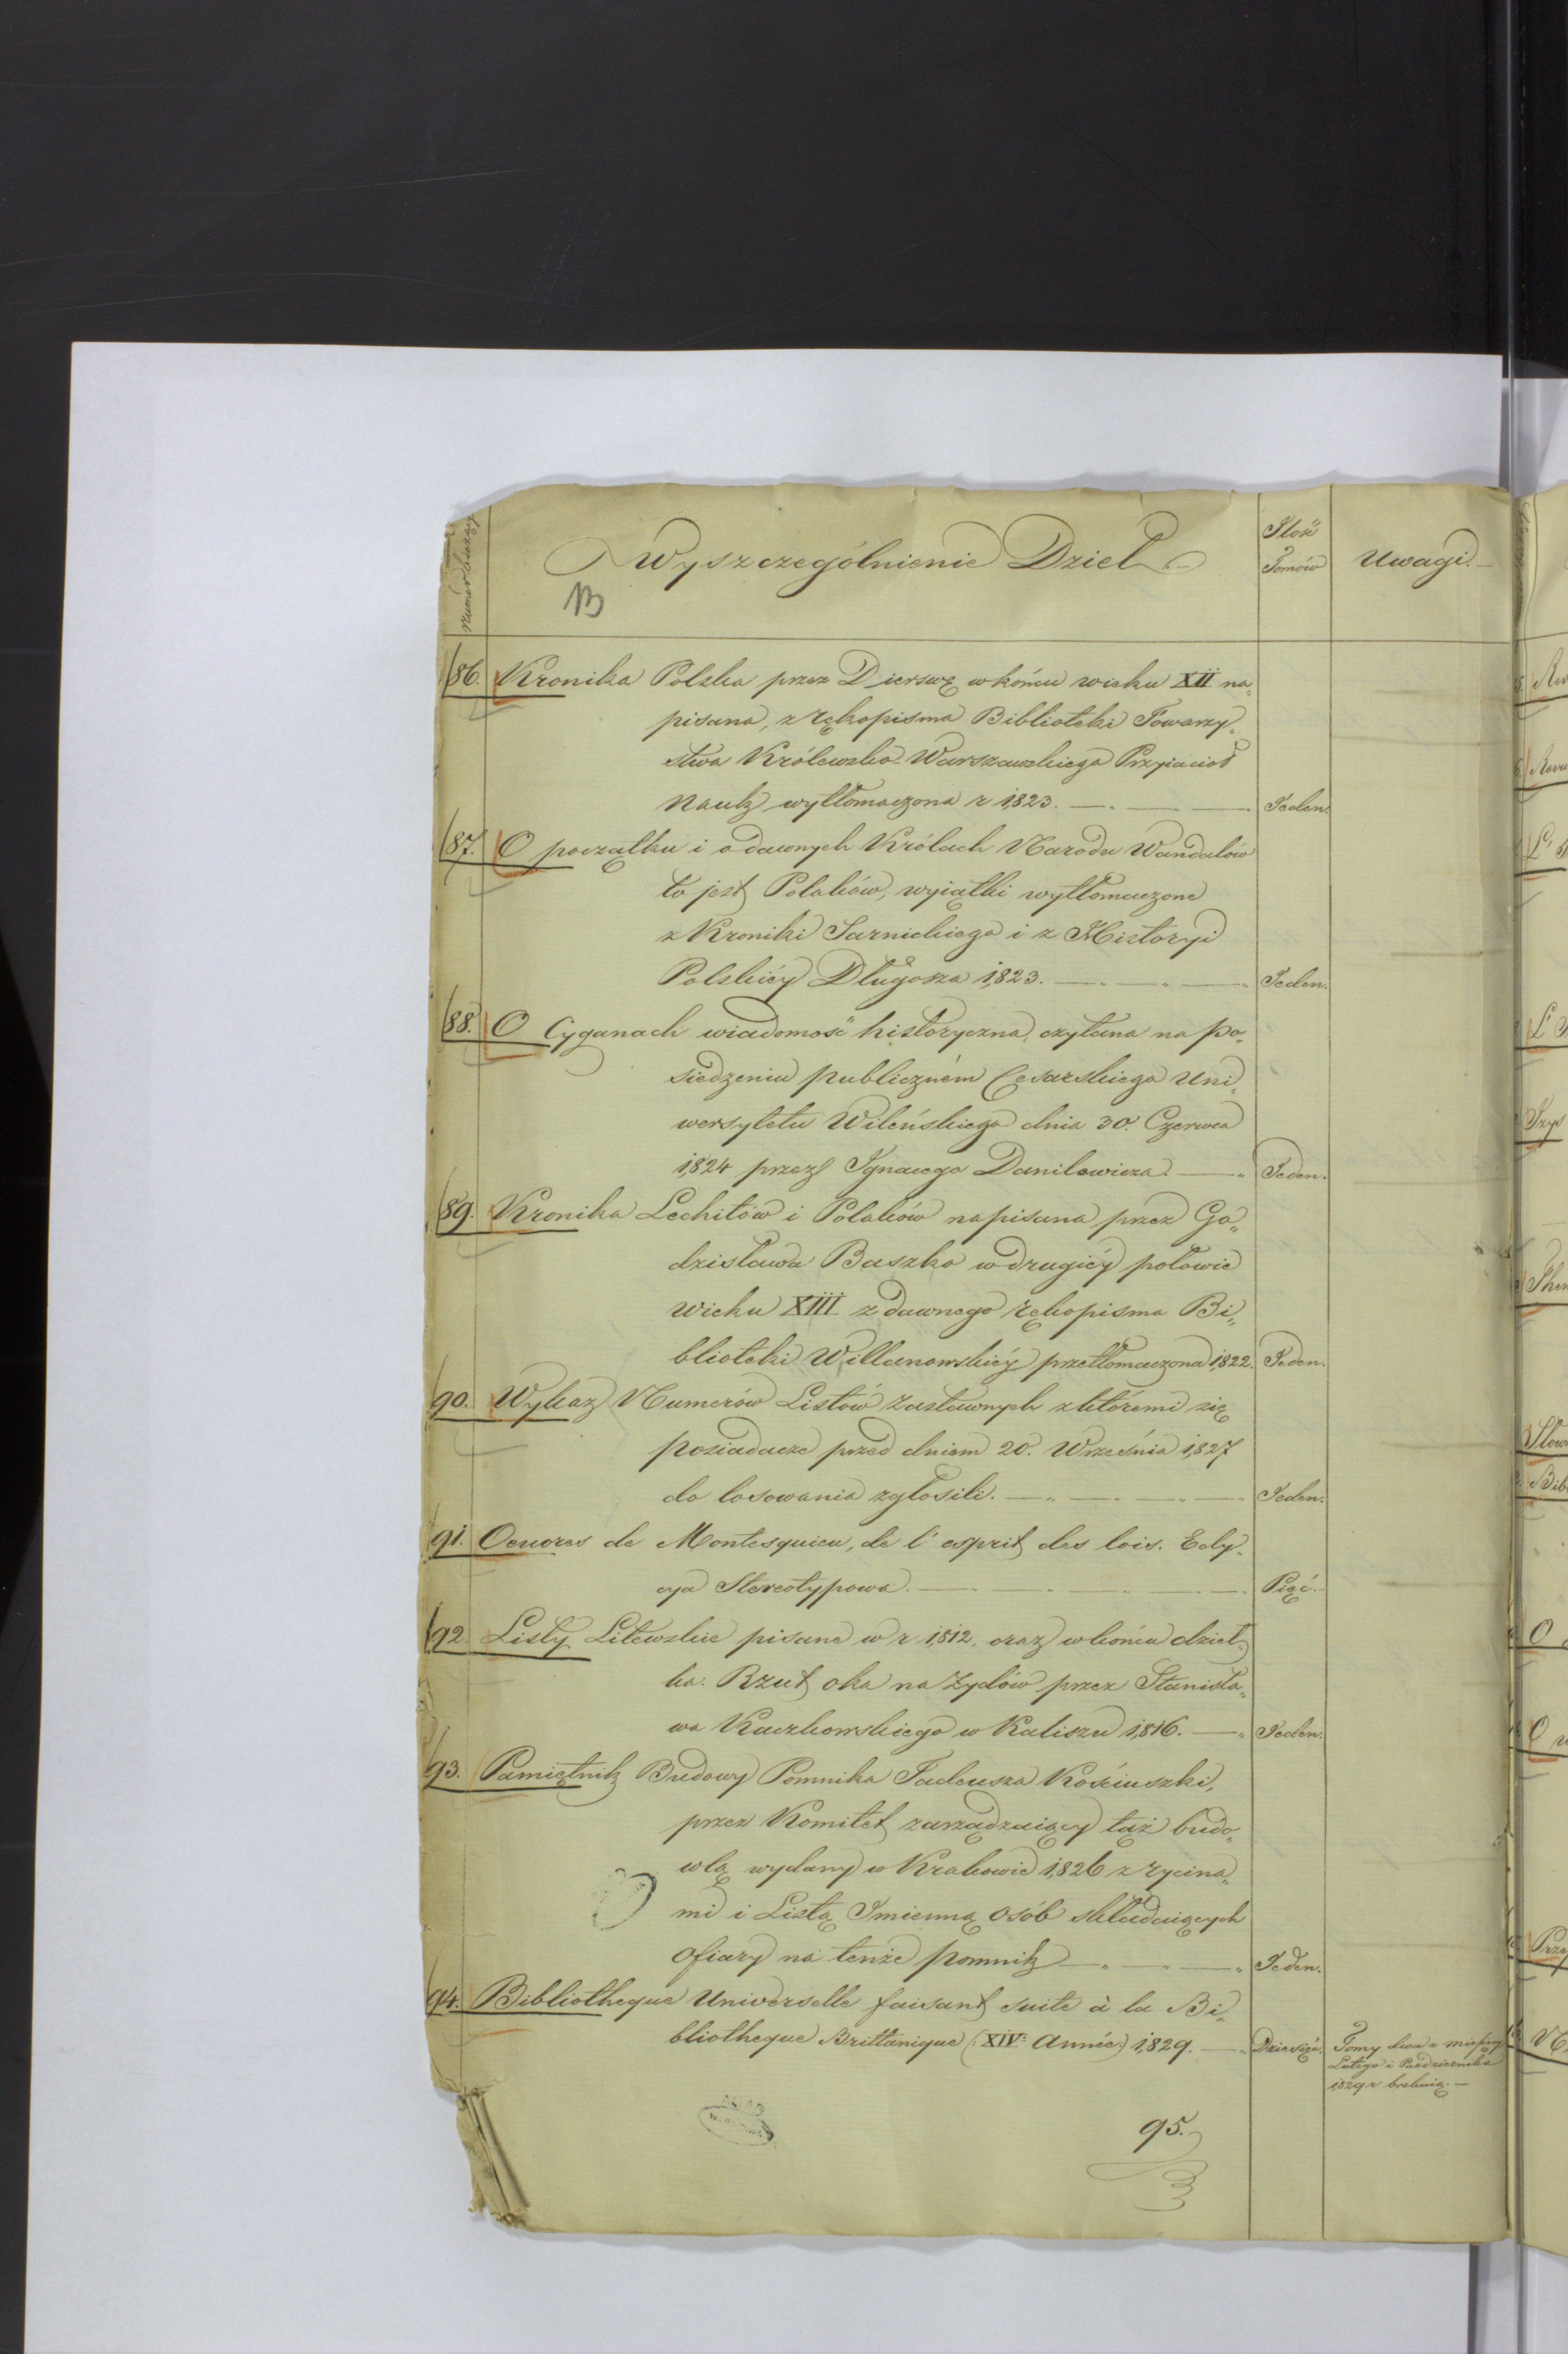 Numer bieżący
Wyszczególnienie Dzieł
Ilość
Tomów
Uwagi.
B
86. Kronika Polska przez Dierswę w końcu wieku XII na„
pisana, z rękopisma Biblioteki Towarzy„
stwa Królewsko Warszawskiego Przyiaciół
Nauk wytłomaczona r 1823. Jeden.
87. O początku i o dawnych Królach Narodu Wandalów
to jest Polaków, wyiątki wytłomaczone
z Kroniki Sarnickiego i z Historyi
Polskiéy Długosza 1823. Jeden.
88. O Cyganach wiadomość historyczna, czytana na po„
siedzeniu publiczném Cesarskiego Uni„
wersytetu Wileńskiego dnia 30. Czerwca
1824 przez Ignacego Danilowicza. Jeden.
89. Kronika Lechitów i Polaków napisana przez Go„
dzisława Baszko w drugiéy połowie
wieku XIII z dawnego rękopisma Bi„
blioteki Willanowskiéy przetłomaczona 1822. Jeden.
90. Wykaz Numerów Listów Zastawnych z któremi się
posiadacze przed dniem 20. Września 1827
do losowania zgłosili. Jeden.
91. Oeuvres de Montesquieu, de l'esprit des lois. Edy„
cya Stereotypowa. Pięć.
92. Listy Litewskie pisane w r 1812. oraz w końcu dzieł„
ka: Rzut oka na Żydów przez Stanisła„
wa Kaczkowskiego w Kaliszu 1816. Jeden.
93. Pamiętnik Budowy Pomnika Tadeusza Kościuszki,
przez Komitet zarządzaiący tąż budo„
wlą wydany w Krakowie 1826 z rycina„
mi i Listą Imienną osób składaiących
ofiary na tenże pomnik Jeden.
94. Bibliotheque Universelle faisant suite à la Bi„
bliotheque Brittanique (XIV: Année) 1829. Dziesięć. Tomy dwa z
Lutego i Października
1829 r brakuią.
95.